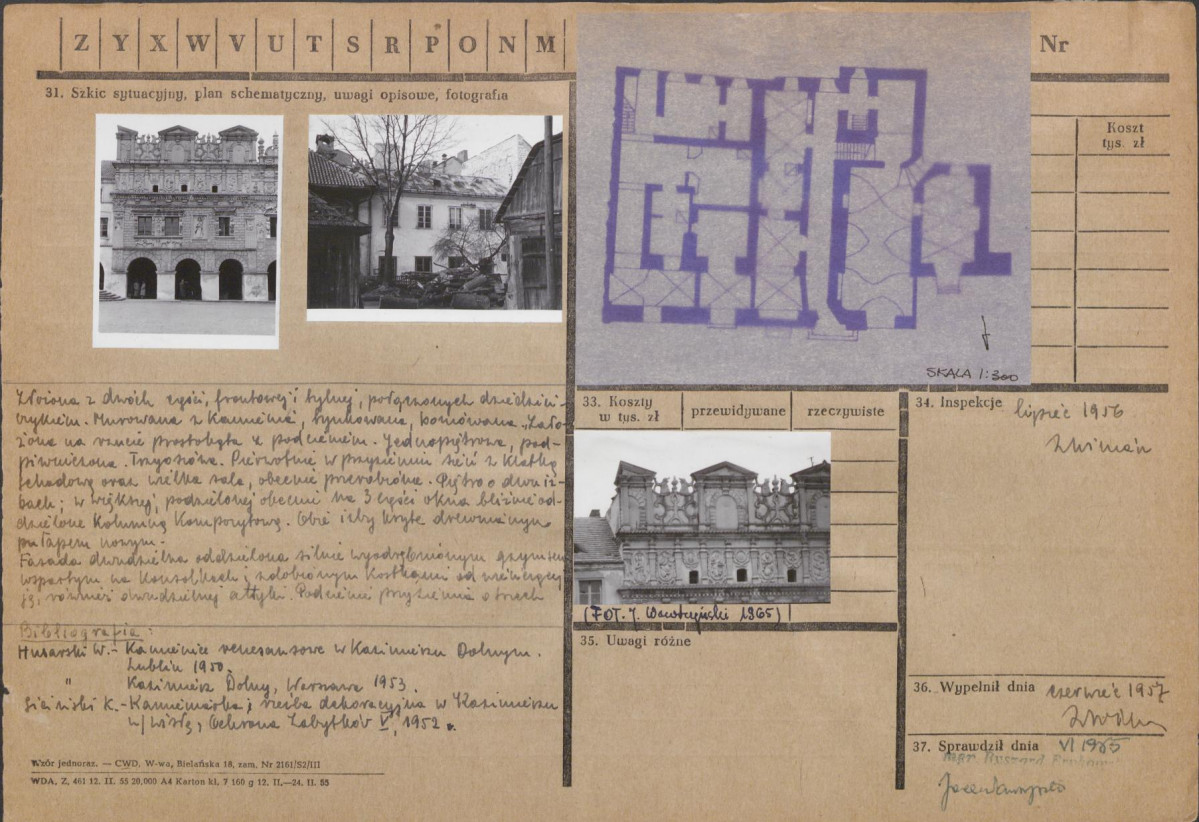 Z Y X W V U T S R P O N M
Nr
31. Szkic sytuacyjny, plan schematyczny, uwagi opisowe, fotografia
Koszt
tys. zł
SKALA 1:300
Złożona z dwóch części, frontowej i tylnej, połączonych dziedziń-
czykiem. Murowana z kamienia, tynkowana, boniowana. Zało-
żona na rzucie prostokąta z podcieniem. Jednopiętrowa, pod-
piwniczona. Trzyosiowa. Pierwotnie w przyziemiu sień z klatką
schodową oraz wielka sala, obecnie przerobione. Piętro o dwu iz-
bach; w większej, podzielonej obecnie na 3 części okna bliźnie od-
dzielone kolumną kompozytową. Obie izby kryte drewnianym
pułapem nowym.
Fasada dwudzielna oddzielona silnie wyodrębnionym gzymsem
wspartym na konsolkach i zdobionym kostkami od wieńczącej
ją, również dwudzielnej attyki. Podcienie przyziemia o trzech
Bibliografia:
Husarski W. - Kamienice renesansowe w Kazimierzu Dolnym.
Lublin 1950.
" Kazimierz Dolny, Warszawa 1953.
Siciński K. - Kamieniarka i rzeźba dekoracyjna w Kazimierzu
n/Wisłą, Ochrona Zabytków V, 1952 r.
Wzór jednoraz. — CWD, W-wa, Bielańska 18, zam. Nr 2161/S2/III
WDA. Z. 461 12. II. 55 20,000 A4 Karton kl. 7 160 g 12. II.—24. II. 55
33. Koszty
w tys. zł
przewidywane
rzeczywiste
(FOT. J. Wawrzyński 1965)
35. Uwagi różne
34. Inspekcje
lipiec 1956
36. Wypełnił dnia czerwiec 1957
37. Sprawdził dnia VI 1965
mgr Ryszard